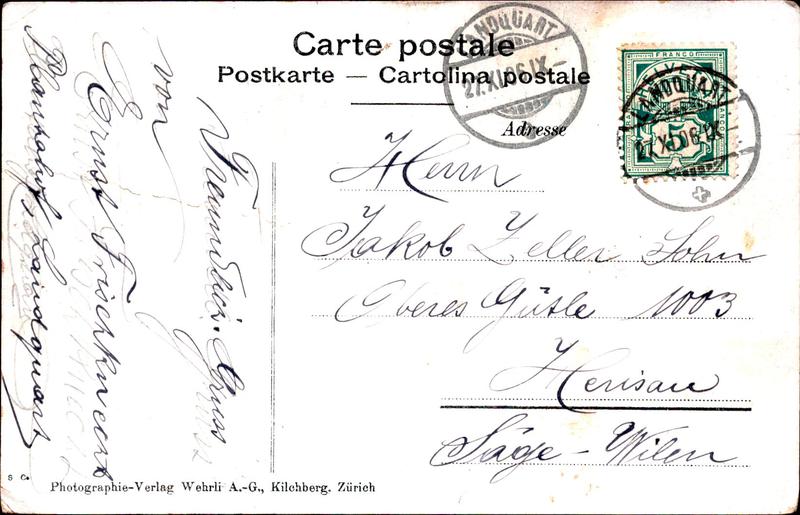 Carte postale
Postkarte — Cartolina postale
LANDQUART
27.XI.06.IX-
FRANCO
LANDQUART
27.XI.06.IX
5
Adresse
Herrn
Jakob Zeller Sohn
Oberes Gütle 1003
Herisau
Säge-Wilen
Freundlich. Gruss
von
Ernst Frischknecht
Plantahof, Landquart
S C.
Photographie-Verlag Wehrli A.-G., Kilchberg. Zürich